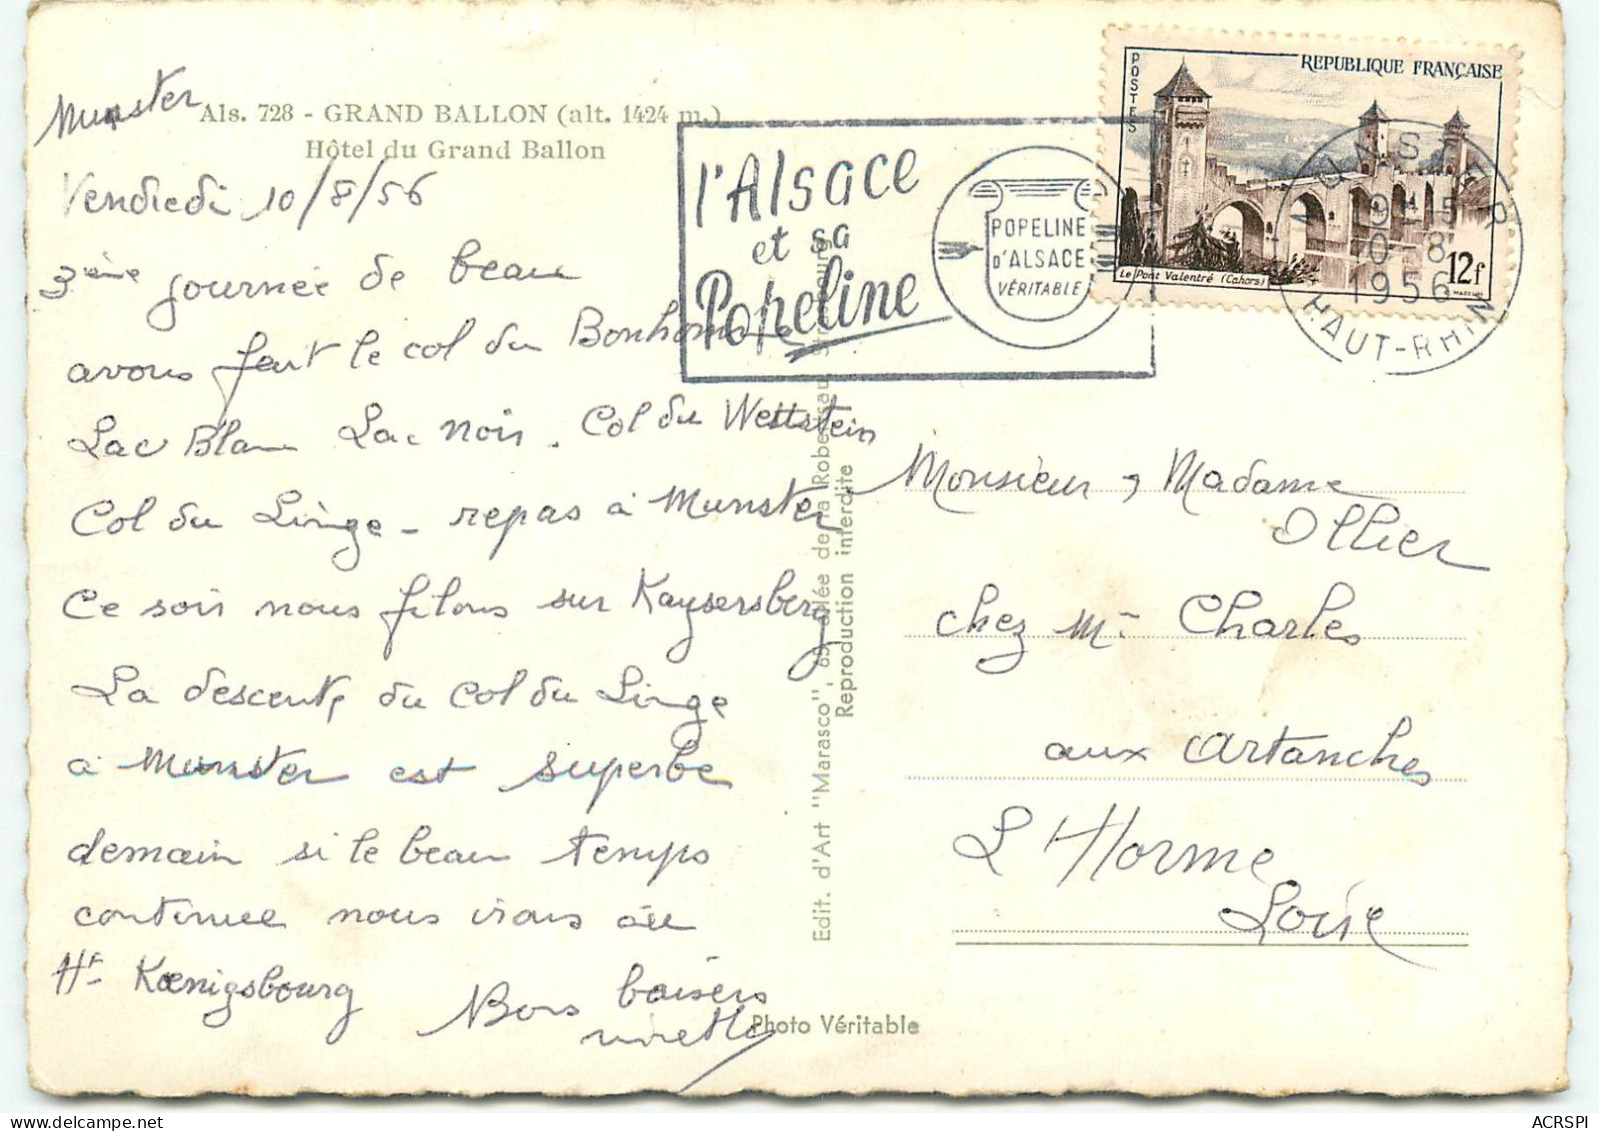 Als. 728 - GRAND BALLON (alt. 1424 m.)
Hôtel du Grand Ballon
Munster
Vendredi 10/8/56
3ème journée de beau
avons fait le col du Bonhomme
Lac Blanc Lac Noir. Col du Wettstein
Col du Linge - repas à Munster
Ce soir nous filons sur Kaysersberg
La descente du Col du Linge
à Munster est superbe
demain si le beau temps
continue nous irons au
Ht Kœnigsbourg
Bons baisers
l'Alsace
et sa
Popeline
POPELINE
D'ALSACE
VÉRITABLE
POSTES
REPUBLIQUE FRANÇAISE
Le Pont Valentré (Cahors)
12f
MUNSTER
10-8
1956
HAUT-RHIN
Edit. d'Art "Marasco", allée de la Robertsau
Reproduction interdite
Photo Véritable
Monsieur, Madame
Ollier
chez Mr Charles
aux Artanches
L'Horme
Loire
ACRSPI